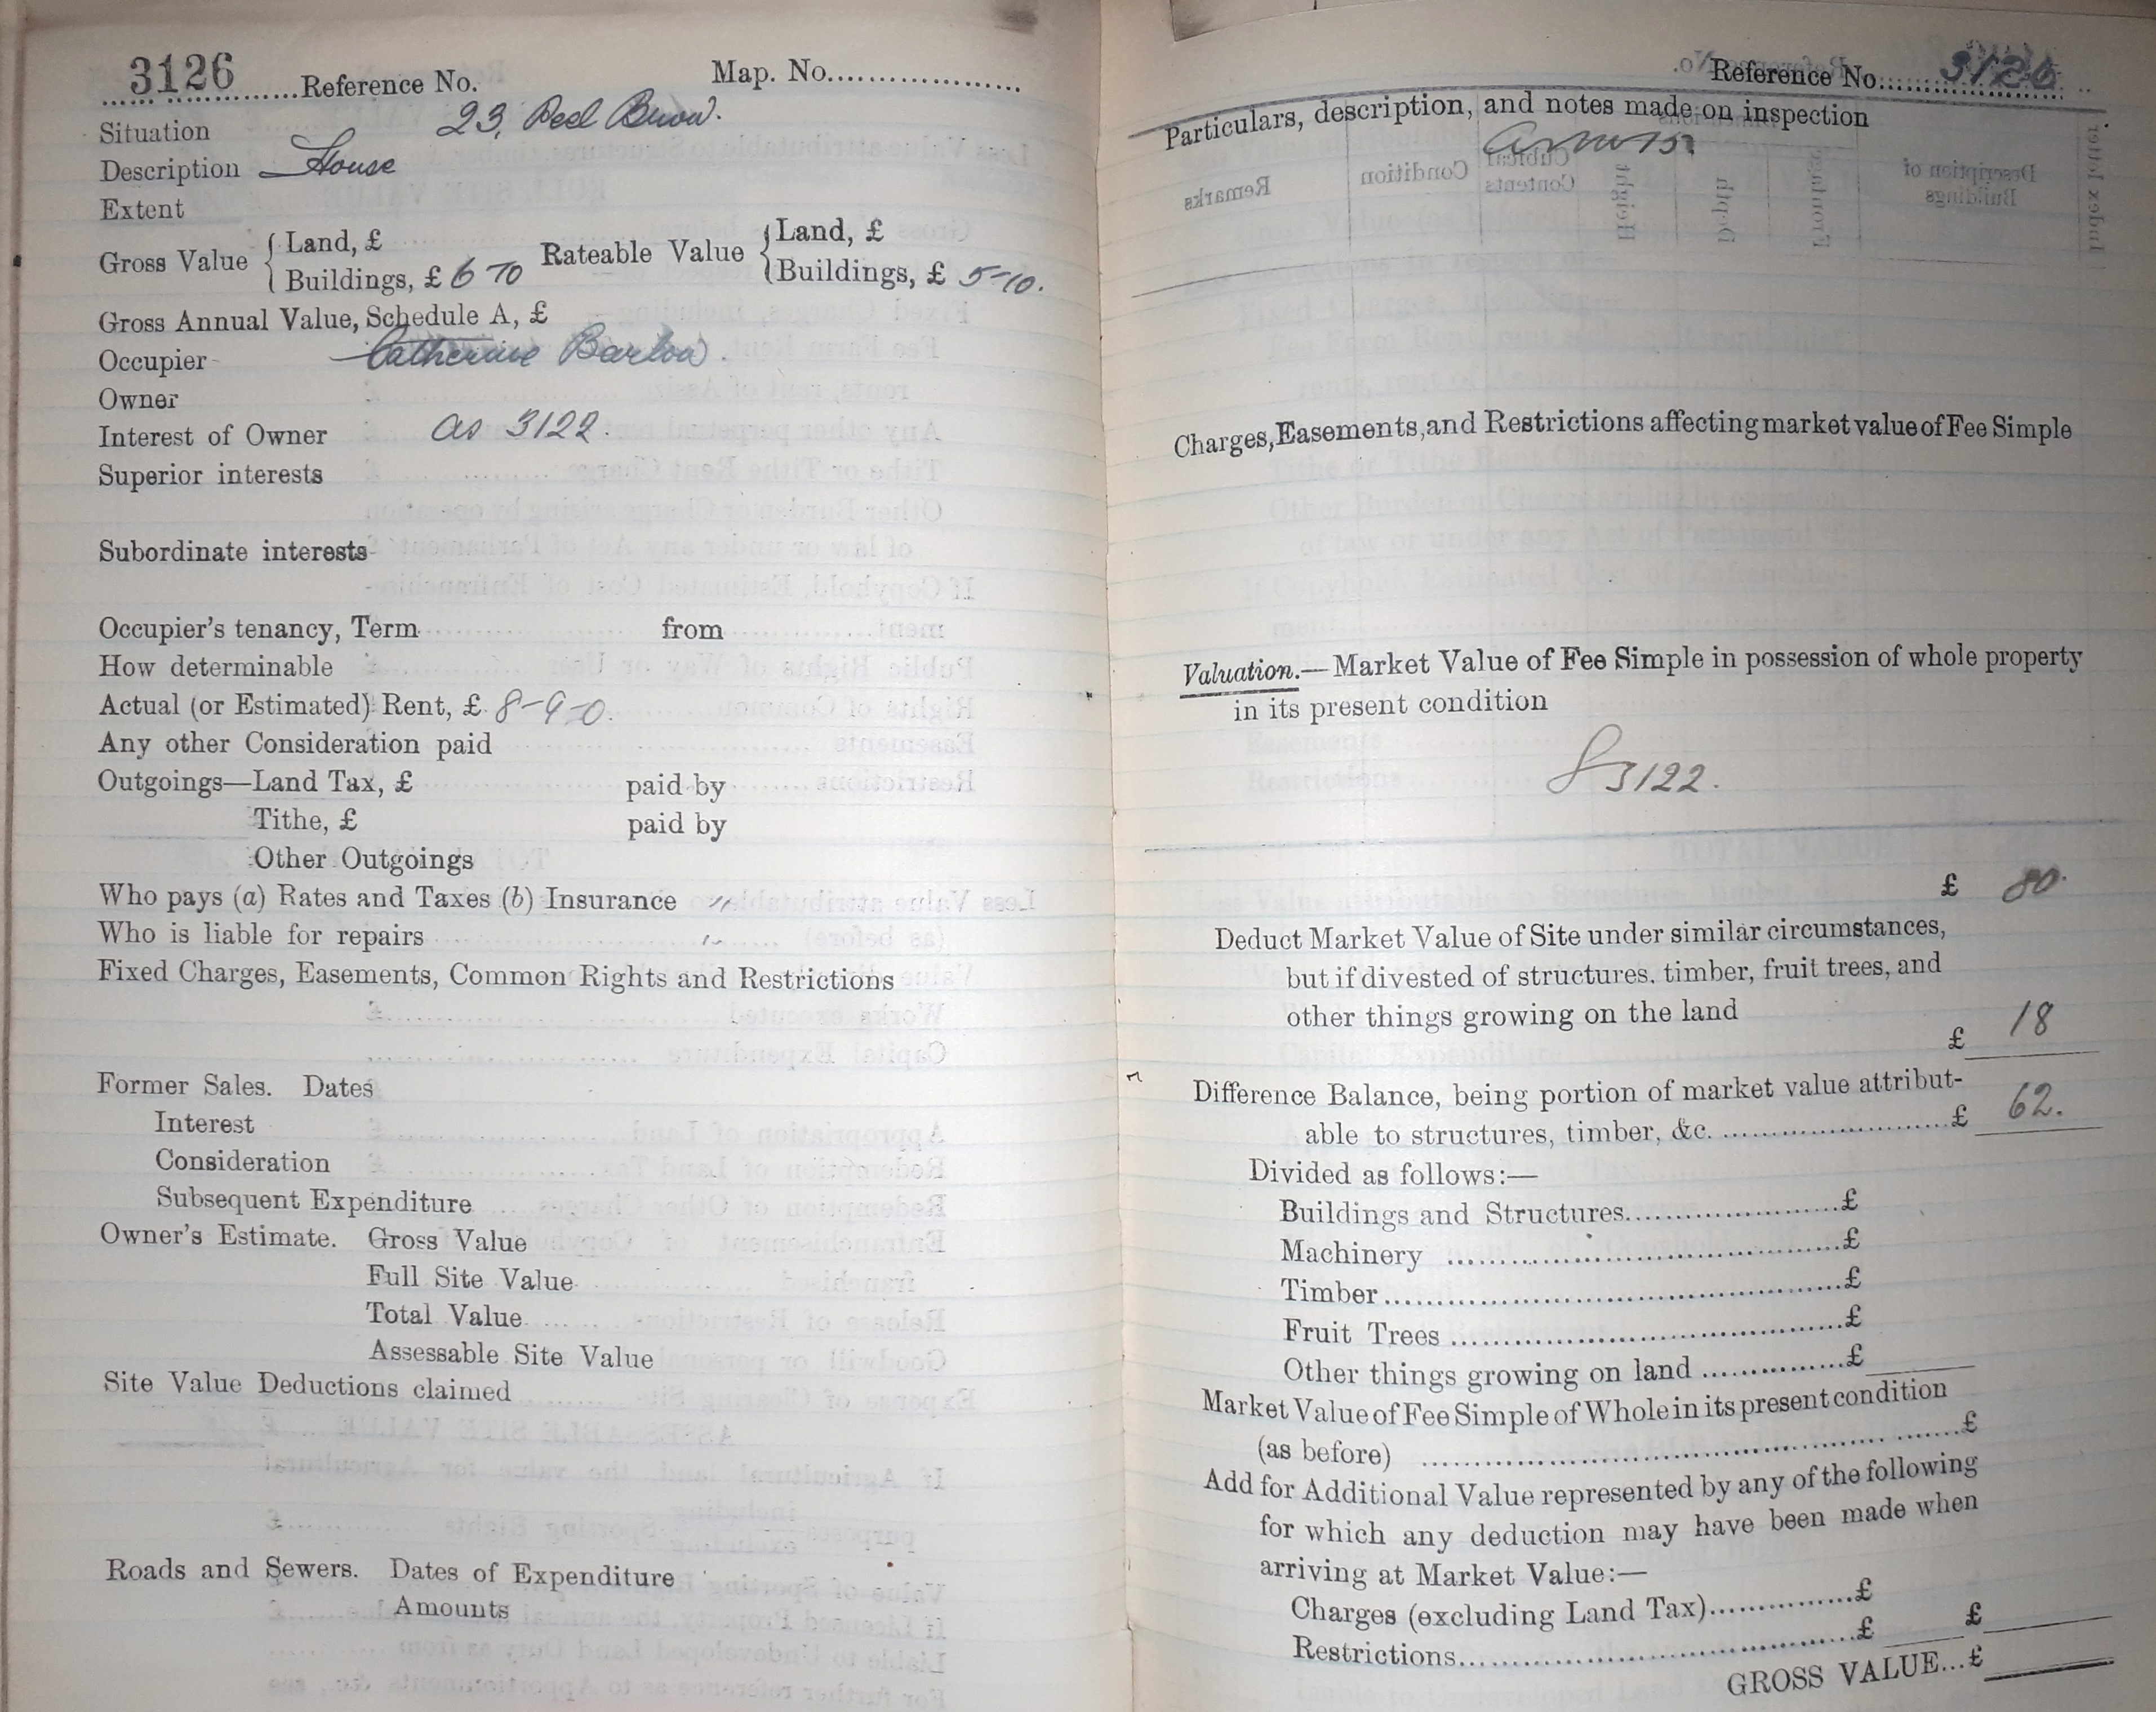 3126 Reference No. Map. No.
Situation 23, Peel Brow.
Description House
Extent
Gross Value { Land, £ Rateable Value { Land, £
Buildings, £ 6 10 Buildings, £ 5-10.
Gross Annual Value, Schedule A, £
Occupier Catherine Barlow.
Owner
Interest of Owner as 3122.
Superior interests
Subordinate interests
Occupier's tenancy, Term from
How determinable
Actual (or Estimated) Rent, £ 8-9-0.
Any other Consideration paid
Outgoings—Land Tax, £ paid by
Tithe, £ paid by
Other Outgoings
Who pays (a) Rates and Taxes (b) Insurance "
Who is liable for repairs "
Fixed Charges, Easements, Common Rights and Restrictions
Former Sales. Dates
Interest
Consideration
Subsequent Expenditure
Owner's Estimate. Gross Value
Full Site Value
Total Value
Assessable Site Value
Site Value Deductions claimed
Roads and Sewers. Dates of Expenditure
Amounts
Reference No. 3126
Particulars, description, and notes made on inspection
Charges, Easements, and Restrictions affecting market value of Fee Simple
Valuation.—Market Value of Fee Simple in possession of whole property
in its present condition
3122.
£ 80.
Deduct Market Value of Site under similar circumstances,
but if divested of structures, timber, fruit trees, and
other things growing on the land
£ 18
Difference Balance, being portion of market value attribut-
able to structures, timber, &c. £ 62.
Divided as follows:—
Buildings and Structures £
Machinery £
Timber £
Fruit Trees £
Other things growing on land £
Market Value of Fee Simple of Whole in its present condition
(as before) £
Add for Additional Value represented by any of the following
for which any deduction may have been made when
arriving at Market Value:—
Charges (excluding Land Tax) £
Restrictions £ £
GROSS VALUE...£